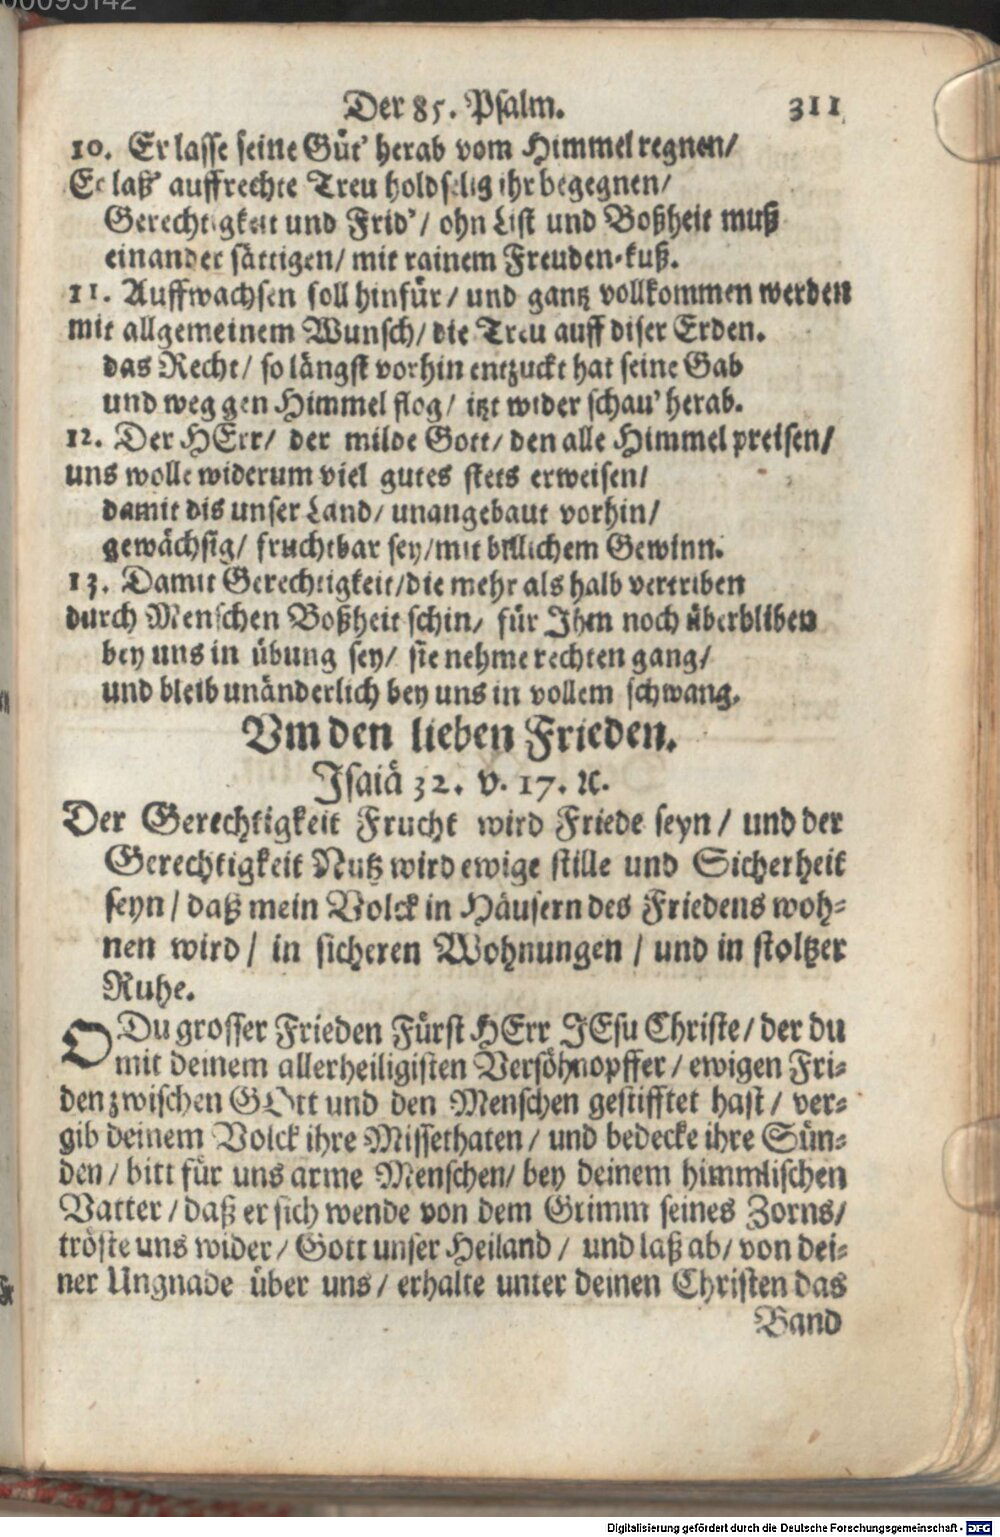 00095142
Der 85. Psalm. 311
10. Er lasse seine Güt' herab vom Himmel regnen/
Er laß' auffrechte Treu holdselig ihr begegnen/
Gerechtigkeit und Frid'/ ohn List und Boßheit muß
einander sättigen/ mit rainem Freuden-kuß.
11. Auffwachsen soll hinfür/ und gantz vollkommen werden
mit allgemeinem Wunsch/ die Treu auff diser Erden.
das Recht/ so längst vorhin entzuckt hat seine Gab
und weg gen Himmel flog/ itzt wider schau' herab.
12. Der HErr/ der milde Gott/ den alle Himmel preisen/
uns wolle widerum viel gutes stets erweisen/
damit dis unser Land/ unangebaut vorhin/
gewächsig/ fruchtbar sey/ mit billichem Gewinn.
13. Damit Gerechtigkeit/ die mehr als halb vertriben
durch Menschen Boßheit schin/ für Ihm noch überbliben
bey uns in übung sey/ sie nehme rechten gang/
und bleib unänderlich bey uns in vollem schwang.
Vm den lieben Frieden.
Isaiä 32. v. 17. ꝛc.
Der Gerechtigkeit Frucht wird Friede seyn/ und der
Gerechtigkeit Nutz wird ewige stille und Sicherheit
seyn/ daß mein Volck in Häusern des Friedens woh-
nen wird/ in sicheren Wohnungen/ und in stoltzer
Ruhe.
O Du grosser Frieden Fürst HErr JEsu Christe/ der du
mit deinem allerheiligisten Versöhnopffer/ ewigen Fri-
den zwischen GOtt und den Menschen gestifftet hast/ ver-
gib deinem Volck ihre Missethaten/ und bedecke ihre Sün-
den/ bitt für uns arme Menschen/ bey deinem himmlischen
Vatter/ daß er sich wende von dem Grimm seines Zorns/
tröste uns wider/ Gott unser Heiland/ und laß ab/ von dei-
ner Ungnade über uns/ erhalte unter deinen Christen das
Band
Digitalisierung gefördert durch die Deutsche Forschungsgemeinschaft - DFG